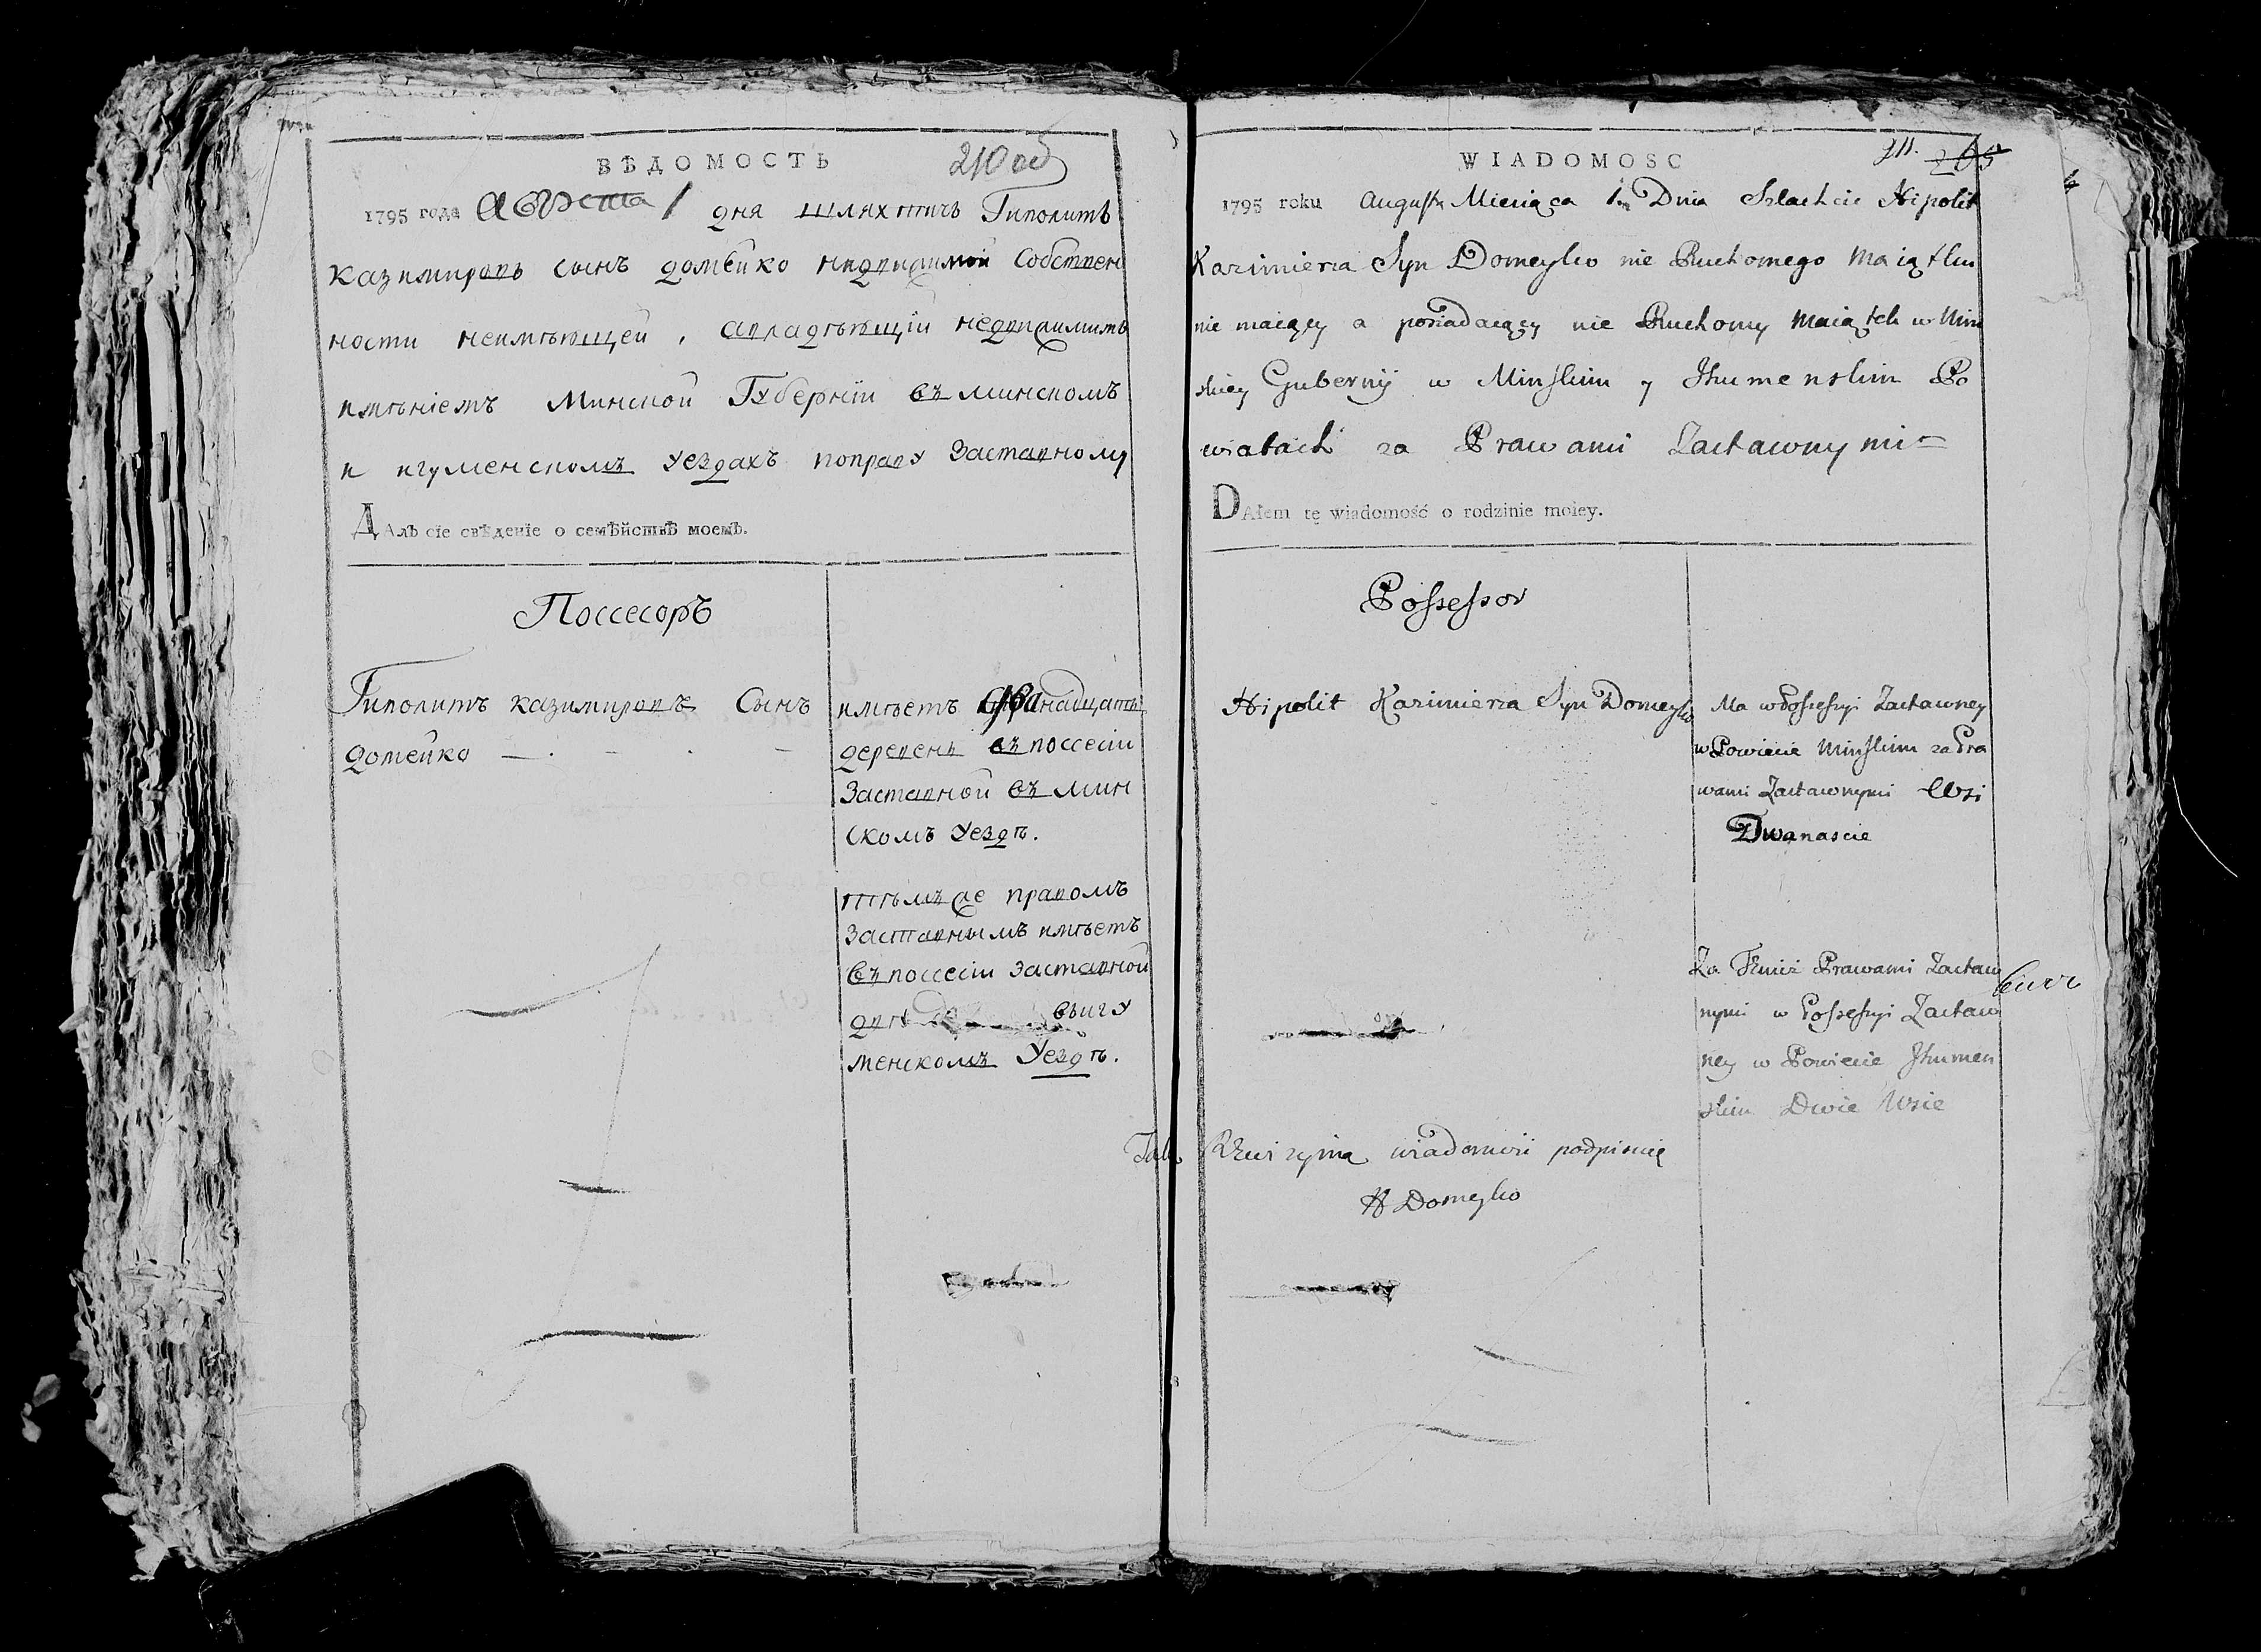 ВѢДОМОСТЬ 210 об
1795 года Августа 1 дня шляхтичъ Гиполитъ
Казимировъ сынъ Домейко недвижимой собствен
ности неимѣющей, авладѣющій недвижимымъ
имѣніемъ Минской Губерніи въ Минскомъ
и игуменскомъ уездахъ поправу Заставному
ДАлъ сіе свѣденіе о семѣйствѣ моемъ.
Поссесоръ
Гиполитъ Казимировъ Сынъ
Домейко
имѣетъ двѣнадцать
деревень въ поссесіи
Заставной въ Мин
скомъ уездѣ.
тѣмъже правомъ
Заставнымъ имѣетъ
въ поссесіи Заставной
двѣ въигу
менскомъ Уездѣ.
WIADOMOSC 211. 265
1795 roku Augusta Miesiąca 1. Dnia Szlachcic Hipolit
Kazimierza Syn Domeyko nie Ruchomego Maiątku
nie maiący a posiadaiący nie Ruchomy Maiątek w Min
skiey Gubernij w Minskim y Jhumenskim Po
wiatach za Prawami Zastawnymi
DAłem tę wiadomość o rodzinie moiey.
Possessor
Hipolit Kazimierza Syn Domeyko
Ma w Possessyi Zastawney
w Powiecie Minskim za Pra
wami Zastawnymi Wsi
Dwanascie
Za Temiż Prawami Zastaw
nymi w Possessyi Zastaw
ney w Powiecie Jhumen
skim Dwie Wsie
Tak wiadomość podpisuię
H Domeyko